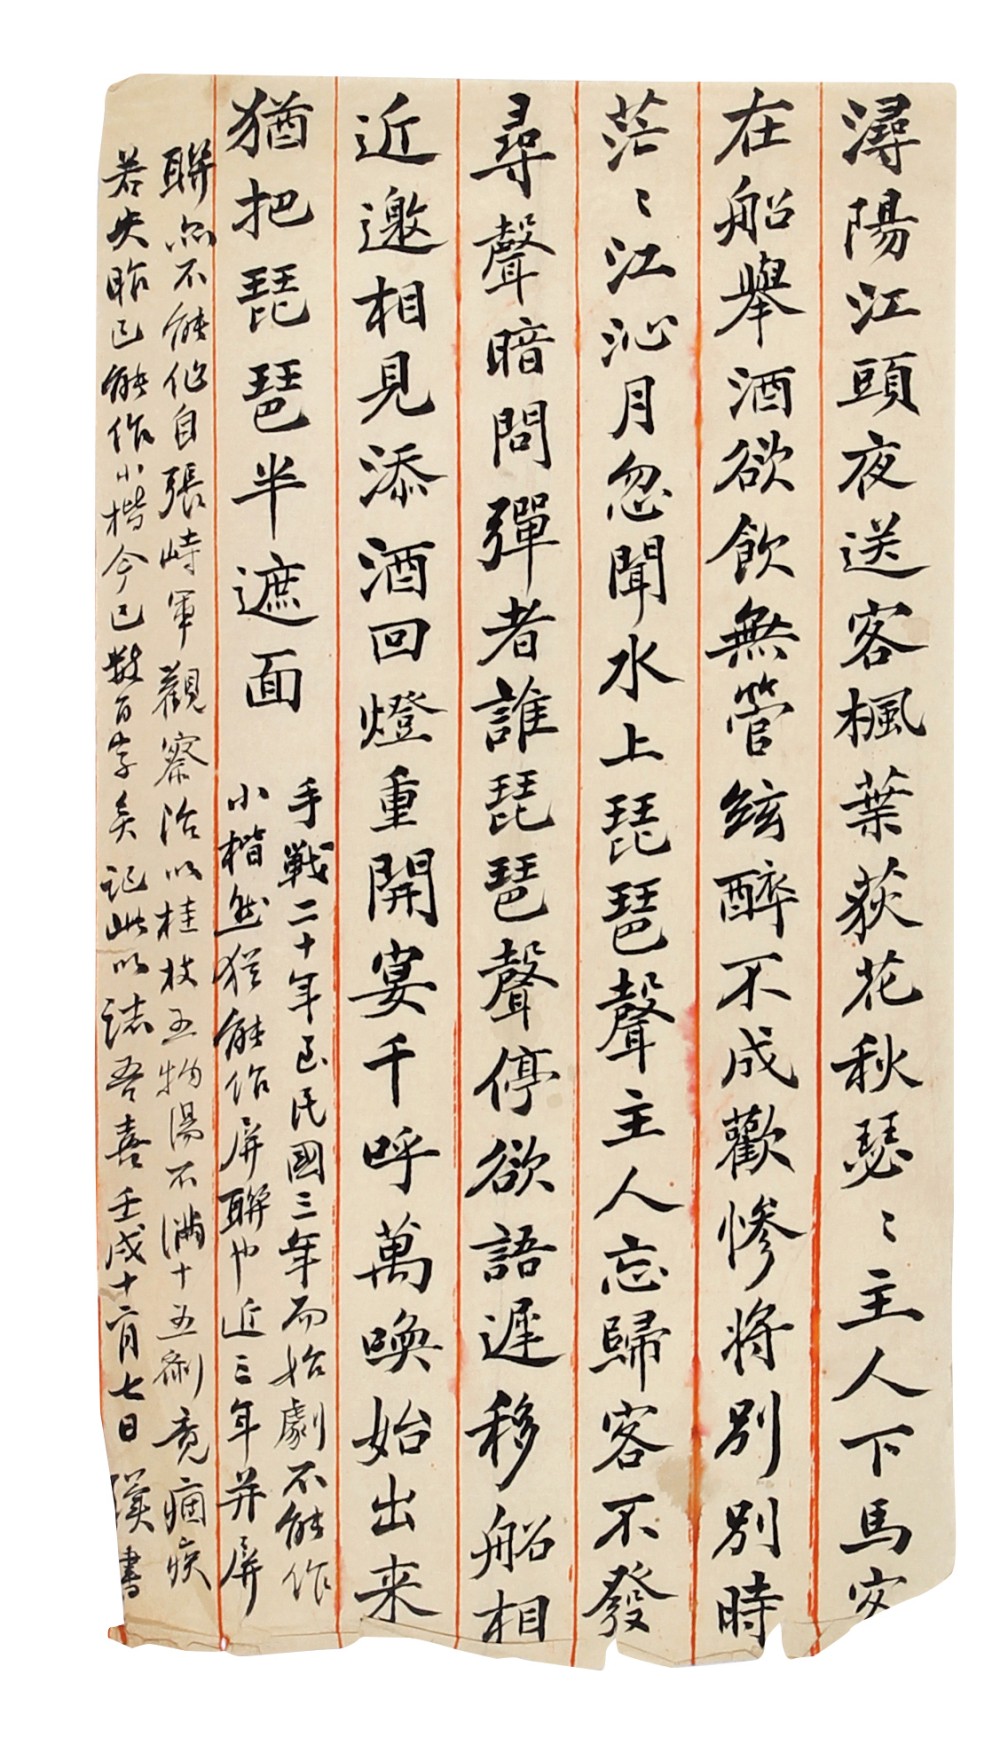 潯陽江頭夜送客楓葉荻花秋瑟〻主人下馬客
在船舉酒欲飲無管絃醉不成歡慘將別別時
茫〻江沁月忽聞水上琵琶聲主人忘歸客不發
尋聲暗問彈者誰琵琶聲停欲語遲移船相
近邀相見添酒回燈重開宴千呼萬喚始出来
猶把琵琶半遮面
手戰二十年至民國三年而始劇不能作
小楷然猶能作屏聯也近三年并屏
聯亦不能作自張峙軍觀察治以桂枝五物湯不滿十五劑竟痼疾
若失昨已能作小楷今已數百字矣記此以誌吾喜壬戌十二月七日漢書